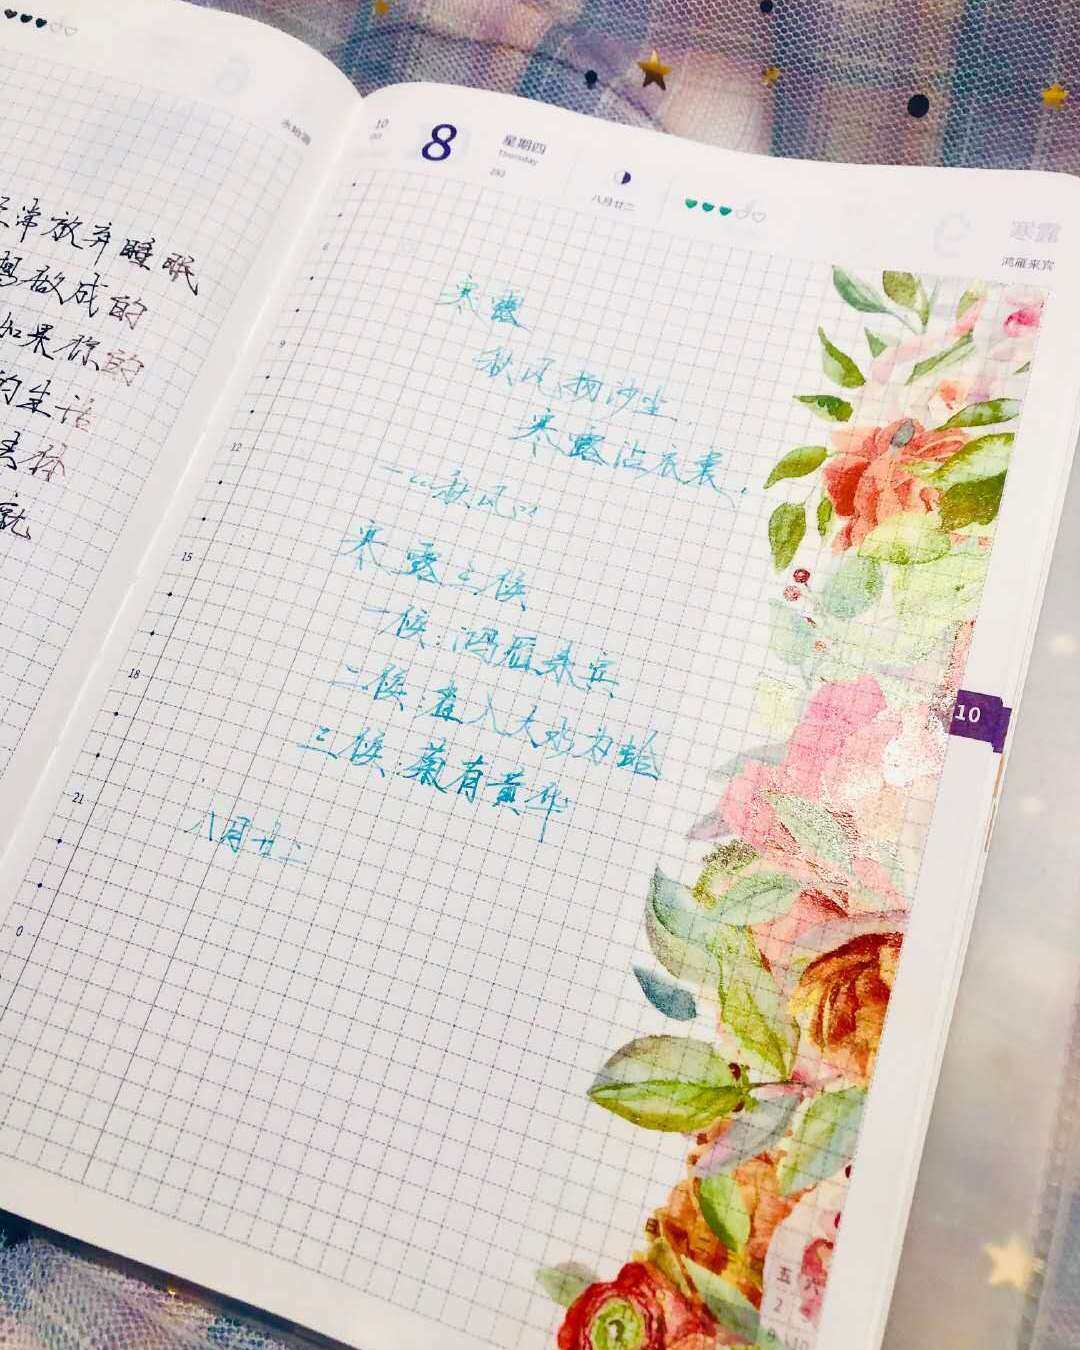 常放弃睡眠
做成的
如果你的
的生活
就
10
8
星期四
Thursday
282
八月廿二
寒露
鸿雁来宾
寒露
秋风扬沙尘，
寒露沾衣裳，
——《秋风》
寒露三候
一候：鸿雁来宾
二候：雀入大水为蛤
三候：菊有黄华
八月廿二
6
9
12
15
18
21
0
10
五 六
2